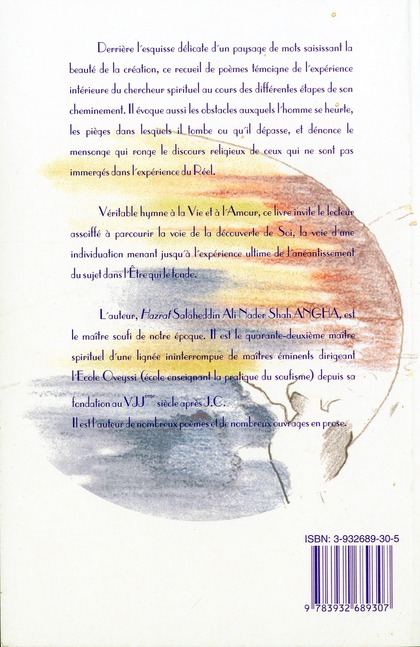 Derrière l'esquisse délicate d'un paysage de mots saisissant la
beauté de la création, ce recueil de poèmes témoigne de l'expérience
intérieure du chercheur spirituel au cours des différentes étapes de son
cheminement. Il évoque aussi les obstacles auxquels l'homme se heurte,
les pièges dans lesquels il tombe ou qu'il dépasse, et dénonce le
mensonge qui ronge le discours religieux de ceux qui ne sont pas
immergés dans l'expérience du Réel.
Véritable hymne à la Vie et à l'Amour, ce livre invite le lecteur
assoiffé à parcourir la voie de la découverte de Soi, la voie d'une
individuation menant jusqu'à l'expérience ultime de l'anéantissement
du sujet dans l'Être qui le fonde.
L'auteur, Hazrat Salaheddin Ali Nader Shah ANGHA, est
le maître soufi de notre époque. Il est le quarante-deuxième maître
spirituel d'une lignée ininterrompue de maîtres éminents dirigeant
l'Ecole Oveyssi (école enseignant la pratique du soufisme) depuis sa
fondation au VIIème siècle après J.C.
Il est l'auteur de nombreux poèmes et de nombreux ouvrages en prose.
ISBN: 3-932689-30-5
9 783932 689307